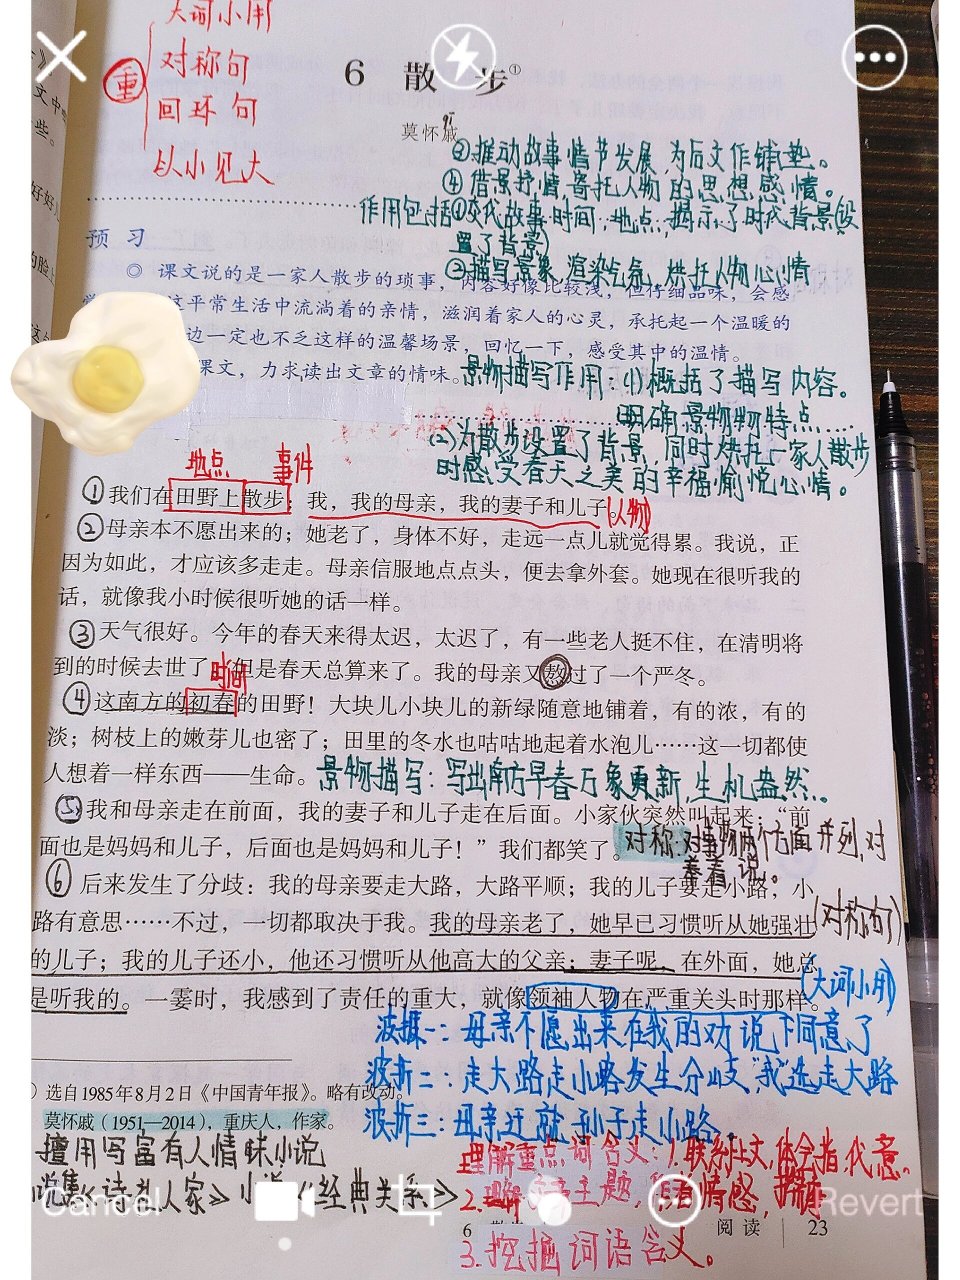 大词小用
对称句
重
回环句
以小见大
6 散步①
莫怀戚
③推动故事情节发展,为后文作铺垫。
④借景抒情寄托人物的思想感情。
作用包括①交代故事时间,地点,揭示了时代背景(设
置了背景)
②描写景象,渲染气氛,烘托人物心情
预习
◎ 课文说的是一家人散步的琐事,内容好像比较浅,但仔细品味,会感
平常生活中流淌着的亲情,滋润着家人的心灵,承托起一个温暖的
边一定也不乏这样的温馨场景,回忆一下,感受其中的温情。
课文,力求读出文章的情味。
景物描写作用:(1)概括了描写内容。
明确景物物特点……
(2)为散步设置了背景,同时烘托一家人散步
时感受春天之美的幸福愉悦心情。
地点 事件
①我们在田野上散步:我,我的母亲,我的妻子和儿子。(人物)
②母亲本不愿出来的;她老了,身体不好,走远一点儿就觉得累。我说,正
因为如此,才应该多走走。母亲信服地点点头,便去拿外套。她现在很听我的
话,就像我小时候很听她的话一样。
③天气很好。今年的春天来得太迟,太迟了,有一些老人挺不住,在清明将
到的时候去世了。但是春天总算来了。我的母亲又熬过了一个严冬。
时间
④这南方的初春的田野!大块儿小块儿的新绿随意地铺着,有的浓,有的
淡;树枝上的嫩芽儿也密了;田里的冬水也咕咕地起着水泡儿……这一切都使
人想着一样东西——生命。
景物描写:写出南方早春万象更新,生机盎然。
⑤我和母亲走在前面,我的妻子和儿子走在后面。小家伙突然叫起来:“前
面也是妈妈和儿子,后面也是妈妈和儿子!”我们都笑了。
对称:对事物两个方面并列,对
着说。
⑥后来发生了分歧:我的母亲要走大路,大路平顺;我的儿子要走小路,小
路有意思……不过,一切都取决于我。我的母亲老了,她早已习惯听从她强壮
(对称句)
的儿子;我的儿子还小,他还习惯听从他高大的父亲;妻子呢,在外面,她总
(大词小用)
是听我的。一霎时,我感到了责任的重大,就像领袖人物在严重关头时那样。
波折一:母亲不愿出来在我的劝说下同意了
波折二:走大路走小路发生分歧,我选走大路
波折三:母亲迁就孙子走小路。
选自1985年8月2日《中国青年报》。略有改动。
莫怀戚(1951—2014),重庆人,作家。
擅用写富有人情味小说
说集《诗礼人家》小说《经典关系》
理解重点词含义:1.联系上文,体会指代意。
2. 主题, 情感,
3.挖掘词语含义。
Cancel
Revert
6
阅读 23